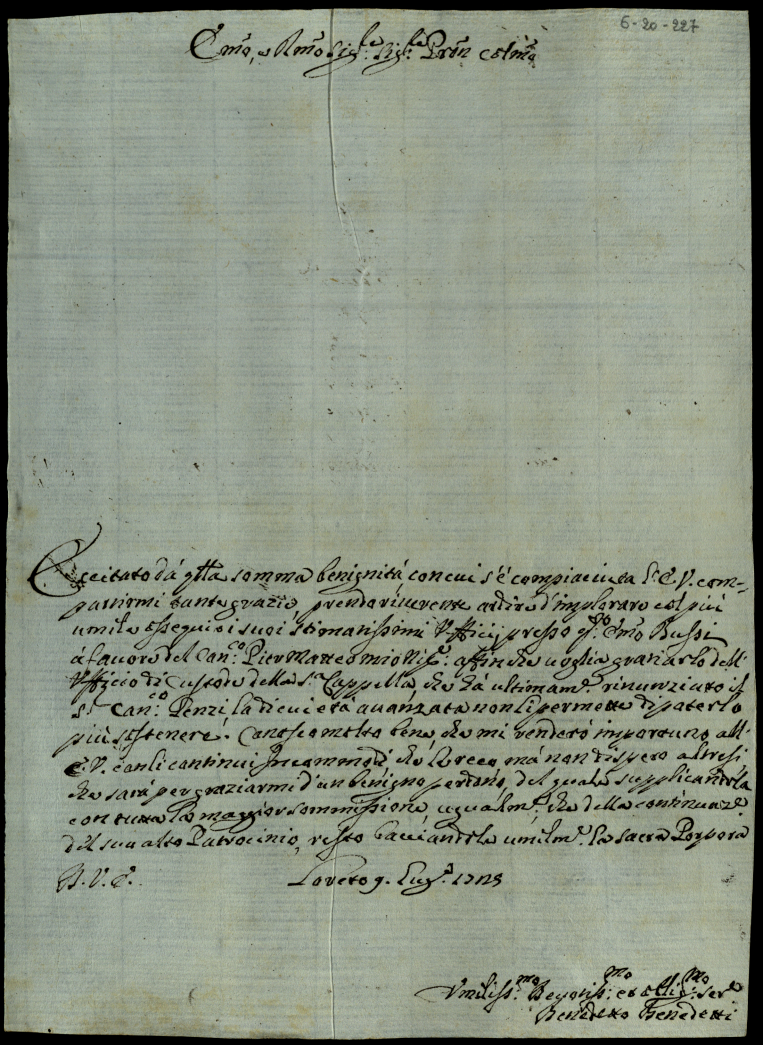 6-20-227
Emo, e Rmo Sig.re Sig.re Prõn Colmo
Eccitato dà qlla somma benignità, con cui s'è compiaciuta l'E. V. com-
partirmi tante grazie, prendo riverente ardire d'implorare col più
umile ossequio i suoi stimatissimi Ufficij presso Emo Bussi
à favore del Can.co Pier Matteo mio Nip.e affin che voglia graziarlo dell'
Ufficio di Custode della S.a Cappella, che hà ultimam.e rinunziato il
S.r Can.co Penzi, la di cui età avanzata non li permette di poterlo
più sostenere. Conosco molto bene, che mi renderò importuno all'
E. V. con li continui Incommodi che le reco, mà non dispero altresì
che sarà per graziarmi d'un benigno perdono, del quale supplicandola
con tutta la maggior sommissione, ugualm.e che della continuaz.e
del suo alto Patrocinio, resto bacciandole umilm.e la sacra Porpora
D. V. E. Loreto 9. Lug.o
Umiliss.mo Devotiss.mo et Obblig.mo Ser.e
Benedetto Benedetti